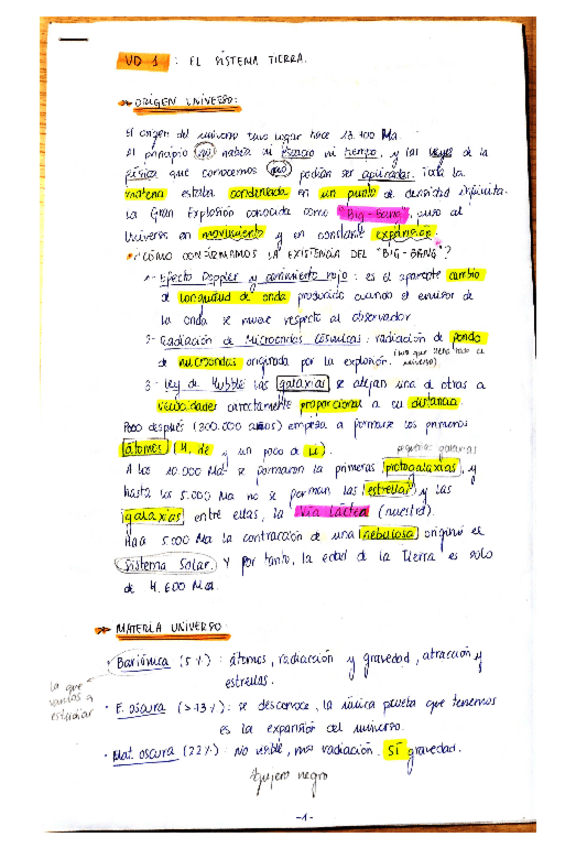 UD 1 : EL SISTEMA TIERRA.
ORIGEN UNIVERSO:
El origen del universo tuvo lugar hace 13.700 Ma.
Al principio no había ni espacio ni tiempo, y las leyes de la
física que conocemos no podían ser aplicadas. Toda la
materia estaba condensada en un punto de densidad infinita.
La Gran Explosión conocida como "Big-Bang", puso al
Universo en movimiento y en constante expansión.
¿CÓMO CONFIRMAMOS LA EXISTENCIA DEL "BIG-BANG"?
1- Efecto Doppler y corrimiento rojo: es el aparente cambio
de longitud de onda producido cuando el emisor de
la onda se mueve respecto al observador
2- Radiación de Microondas Cósmicas: radiación de fondo
de microondas originada por la explosión. (luz que llena todo el universo)
3- Ley de Hubble las galaxias se alejan una de otras a
velocidades correctamente proporcional a su distancia.
Poco después (300.000 años) empieza a formarse los primeros
átomos (H, He y un poco de Li).
pequeñas galaxias
A los 10.000 Ma se formaron la primeras protogalaxias, y
hasta los 5.000 Ma no se forman las estrellas y las
galaxias, entre ellas, la Vía Láctea (nuestra).
Hace 5.000 Ma la contracción de una nebulosa originó el
Sistema Solar. Y por tanto, la edad de la Tierra es solo
de 4.600 Ma.
MATERIA UNIVERSO:
· Bariónica (5%): átomos, radiacción y gravedad, atracción y
estrellas.
lo que
vamos a
estudiar
· E. oscura (>73%): se desconoce, la única prueba que tenemos
es la expansión del universo.
· Mat. oscura (22%): No visible, radiación. SÍ gravedad.
Agujero negro
-1-